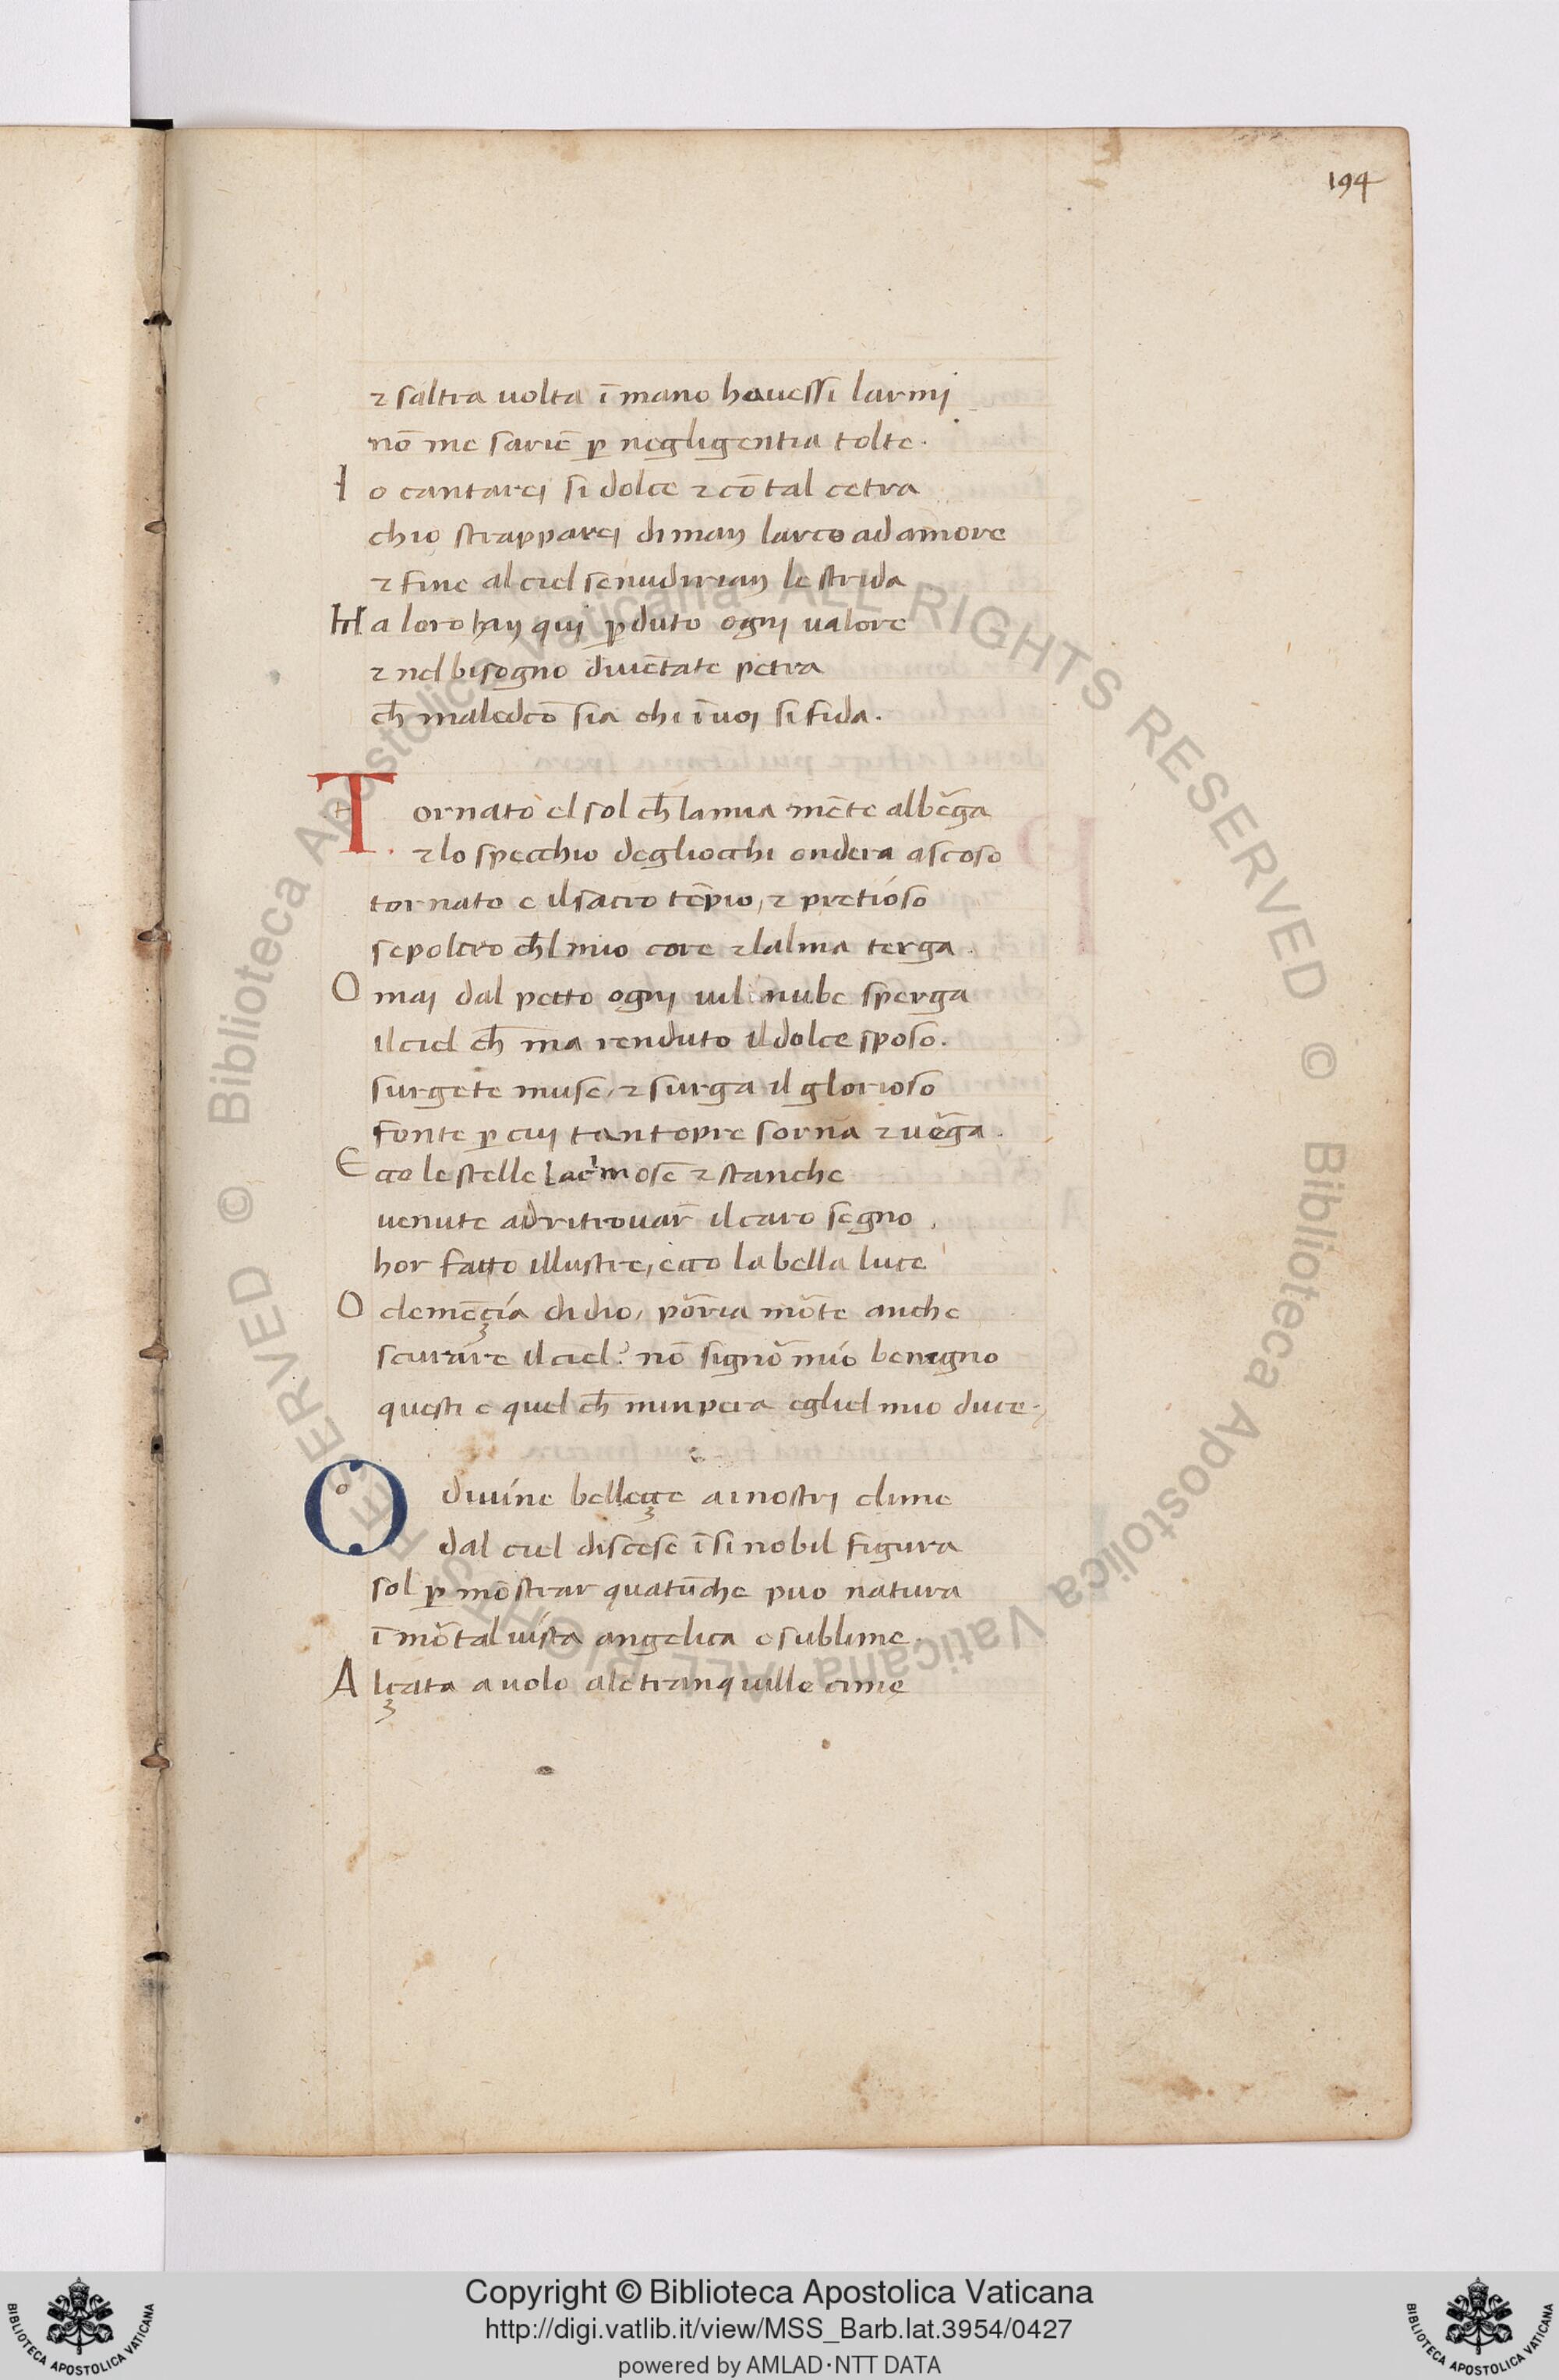 194
⁊ saltra uolta ī mano hauessi larmj
nō me sariē ꝑ negligentia tolte.
I o cantarej si dolce ⁊ cō tal cetra
chio strapparej di man larco ad amore
⁊ fine al ciel senudirian le strida
M a loro han quj ꝑduto ognj ualore
⁊ nel bisogno diuētate petra
ch̄ maledcō sia chi ī uoj si fida.
T ornato el sol ch̄ la mia mēte albērga
⁊ lo specchio degliocchi ondera ascoso
tornato e il sacro tēpio, ⁊ pretióso
sepolcro ch̄l mio core ⁊ lalma terga.
O maj dal petto ognj uil nube sperga
il ciel ch̄ ma renduto il dolce sposo.
surgete muse, ⁊ surga il glorioso
fonte ꝑ cuj tantopre sorna ⁊ uerga.
E cco le stelle lacrimose ⁊ stanche
uenute ad ritrouar il caro segno,
hor fatto illustre, ecco la bella luce
O clemēçía di dio, poria mōte anche
scurare il ciel? nō signor mío benigno
questi e quel ch̄ minpera egliel mio duce.
O diuíne belleççe ai nostrj clime
dal ciel discese ī si nobil figura
sol ꝑ mōstrar quatūche puo natura
ī mortal uísta angelica e sublime.
A lçata a uolo ale tranquille cime
© Biblioteca Apostolica Vaticana ALL RIGHTS RESERVED © Biblioteca Apostolica Vaticana ALL RIGHTS RESERVED
Copyright © Biblioteca Apostolica Vaticana
http://digi.vatlib.it/view/MSS_Barb.lat.3954/0427
powered by AMLAD·NTT DATA
BIBLIOTECA APOSTOLICA VATICANA
BIBLIOTECA APOSTOLICA VATICANA